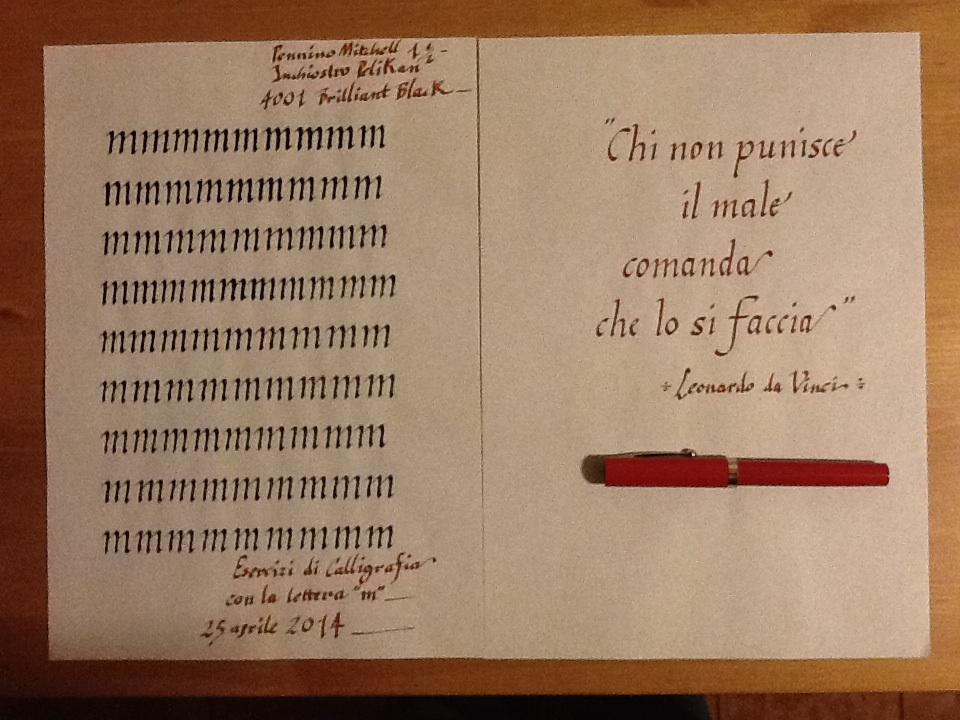 Pennino Mitchell 1½ -
Inchiostro Pelikan
4001 Brilliant Black
mmmmmmmmm
mmmmmmmmm
mmmmmmmmm
mmmmmmmmm
mmmmmmmmm
mmmmmmmmm
mmmmmmmmm
mmmmmmmmm
mmmmmmmmm
Esercizi di Calligrafia
con la lettera "m"
25 aprile 2014
"Chi non punisce
il male
comanda
che lo si faccia"
Leonardo da Vinci